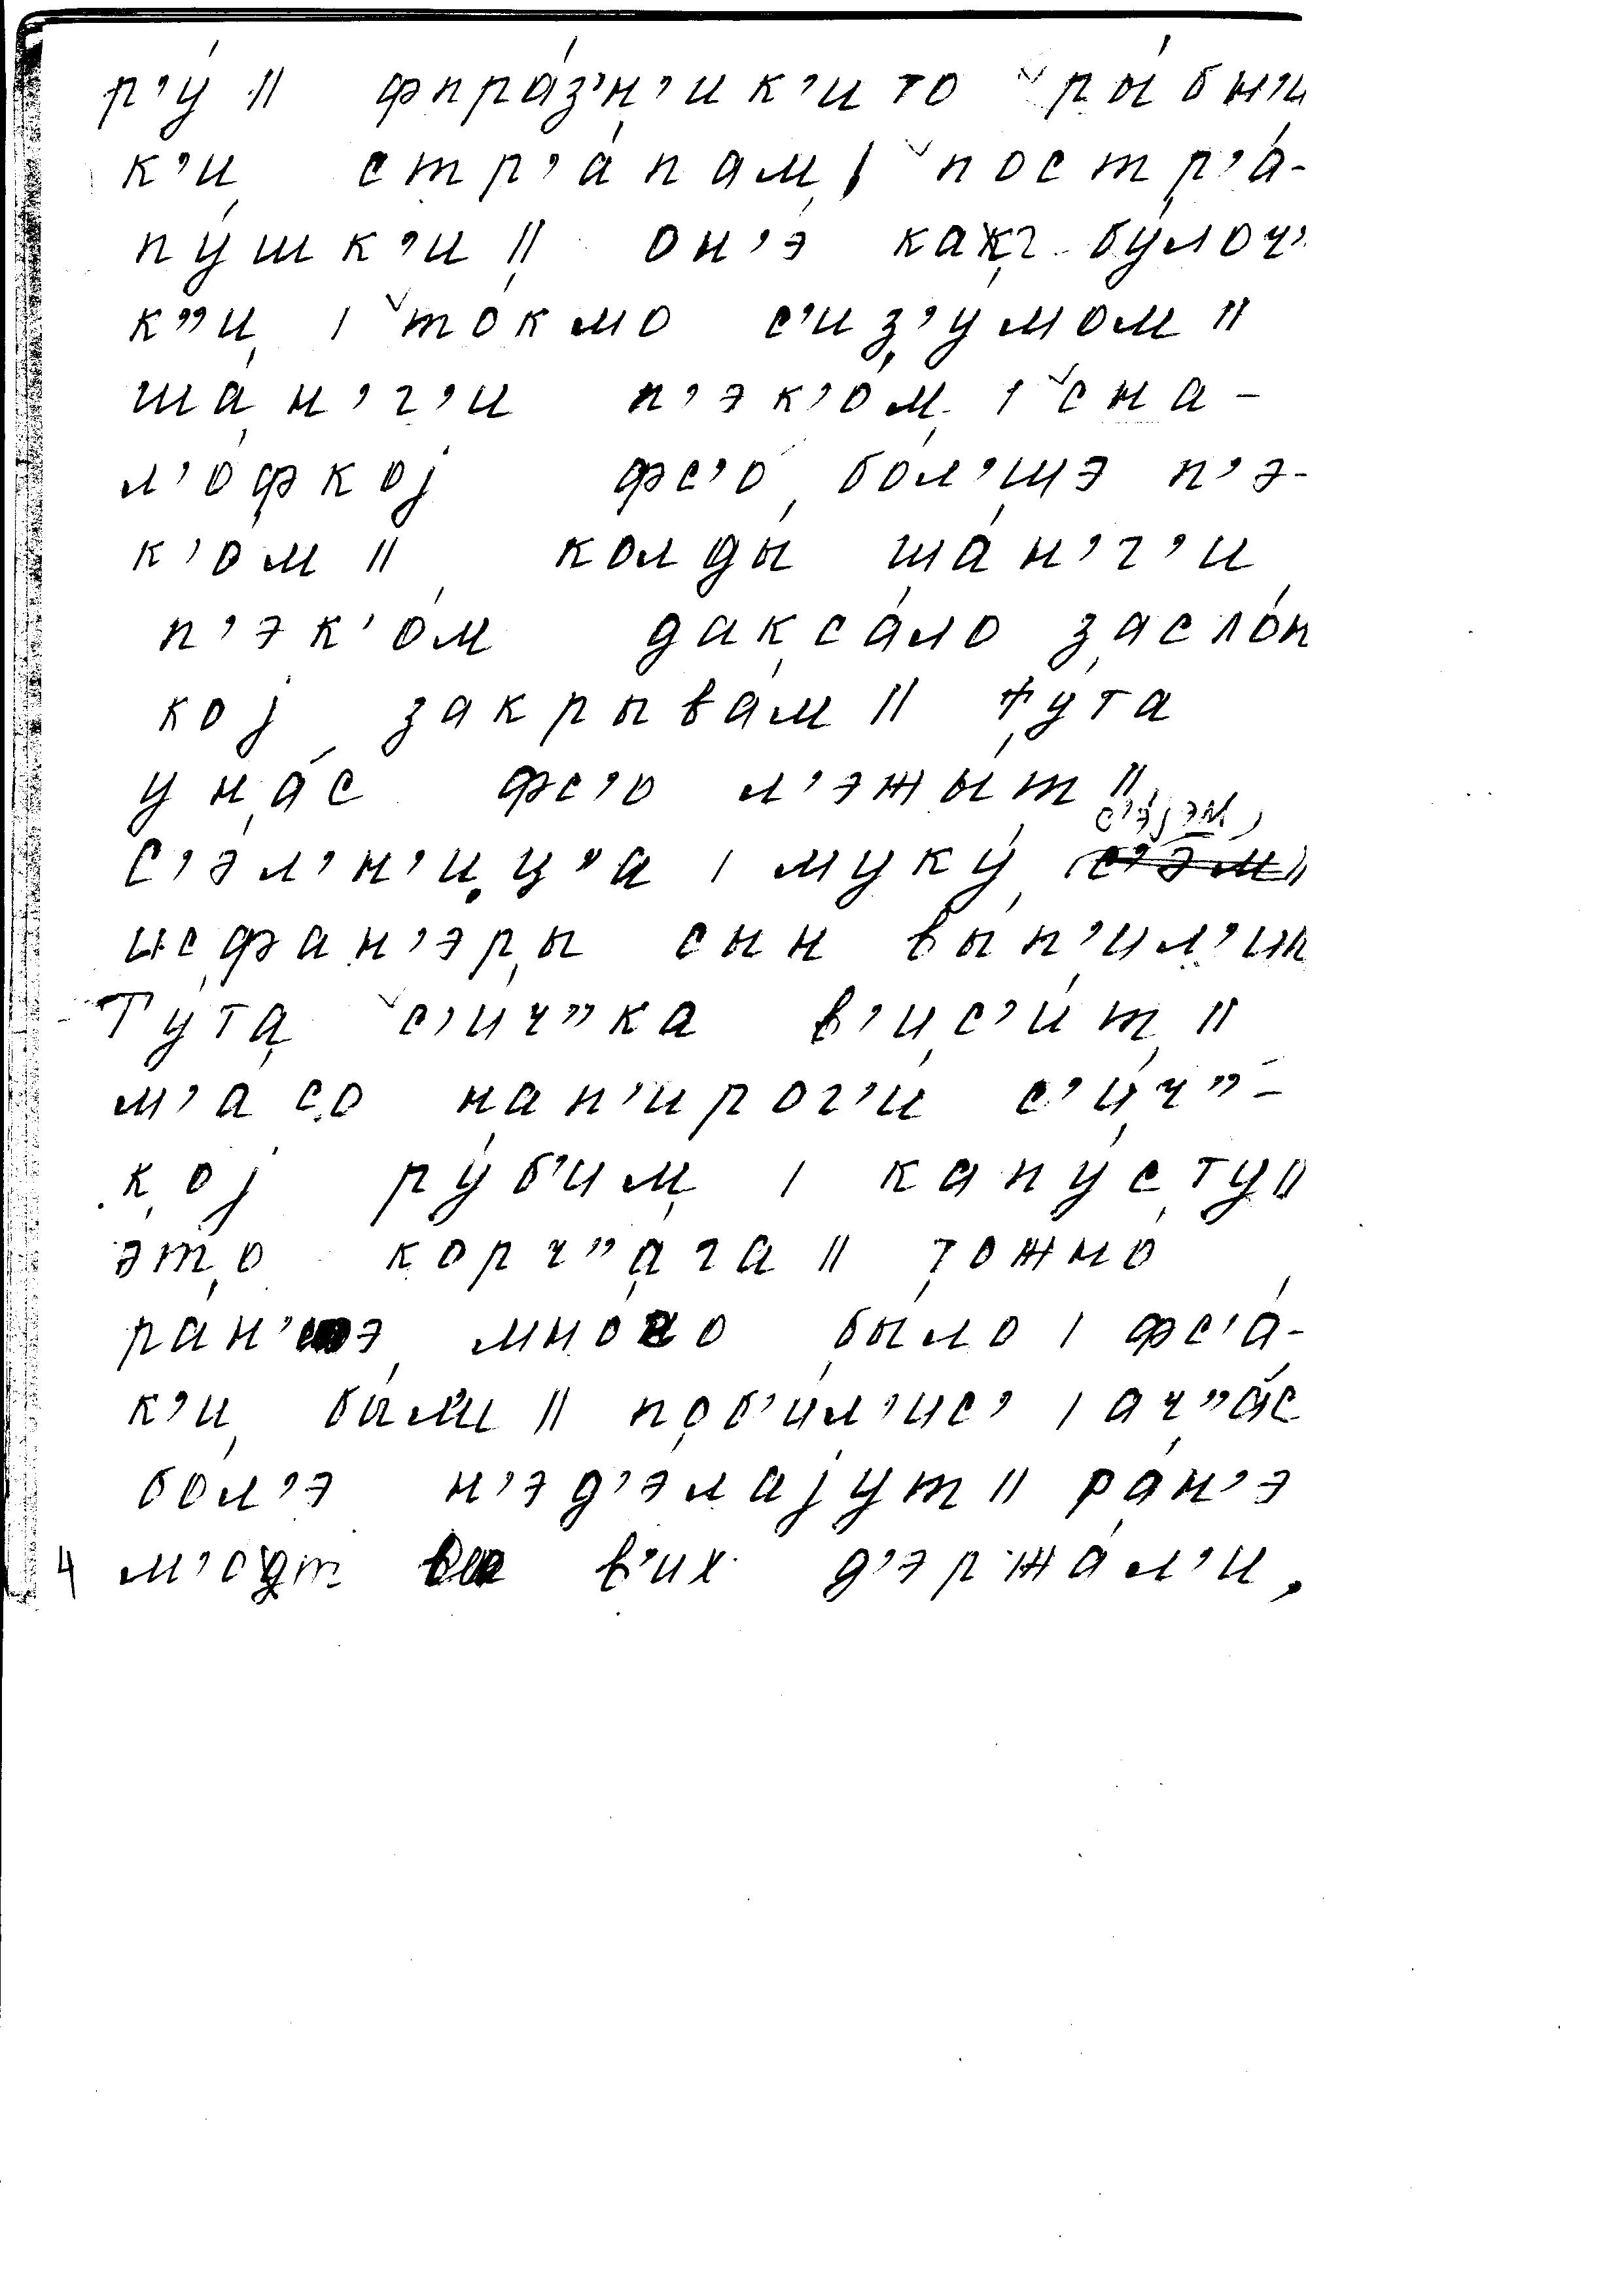 р'у́ || фпра́з'н'ик'и то ры́бн'и
к'и стр'а́пам | постр'а-
пу́шк'и || он'э́ кажг бу́лоч'
к"и | то́кмо с'из'у́мом ||
ша́н'г'и п'эк'о́м | сна-
л'о́фкој фс'о бо́л'шэ п'э-
к'о́м || колды́ ша́н'г'и
п'эк'о́м даксало засло́н
кој закрыва́м || ту́та
у на́с фс'о л'эжы́т ||
с'э́јэм
с'э́л'н'иц"а | муку́ ||
исфан'э́ры сын вы́п'ил'ил
Ту́та с'и́ч"ка в'ис'и́т ||
м'а́со нап'ирог'и́ с'и́ч"-
кој ру́б'им | капу́сту ||
э́то корч"а́га || тожно́
ра́н'шэ мно́го бы́ло | фс'а́-
к'и бы́л'и || поб'и́л'ис' | ач"а́с
бо́л'э н'эд'э́лајут || ра́н'э
4 м'о́дт в'их д'эржа́л'и,